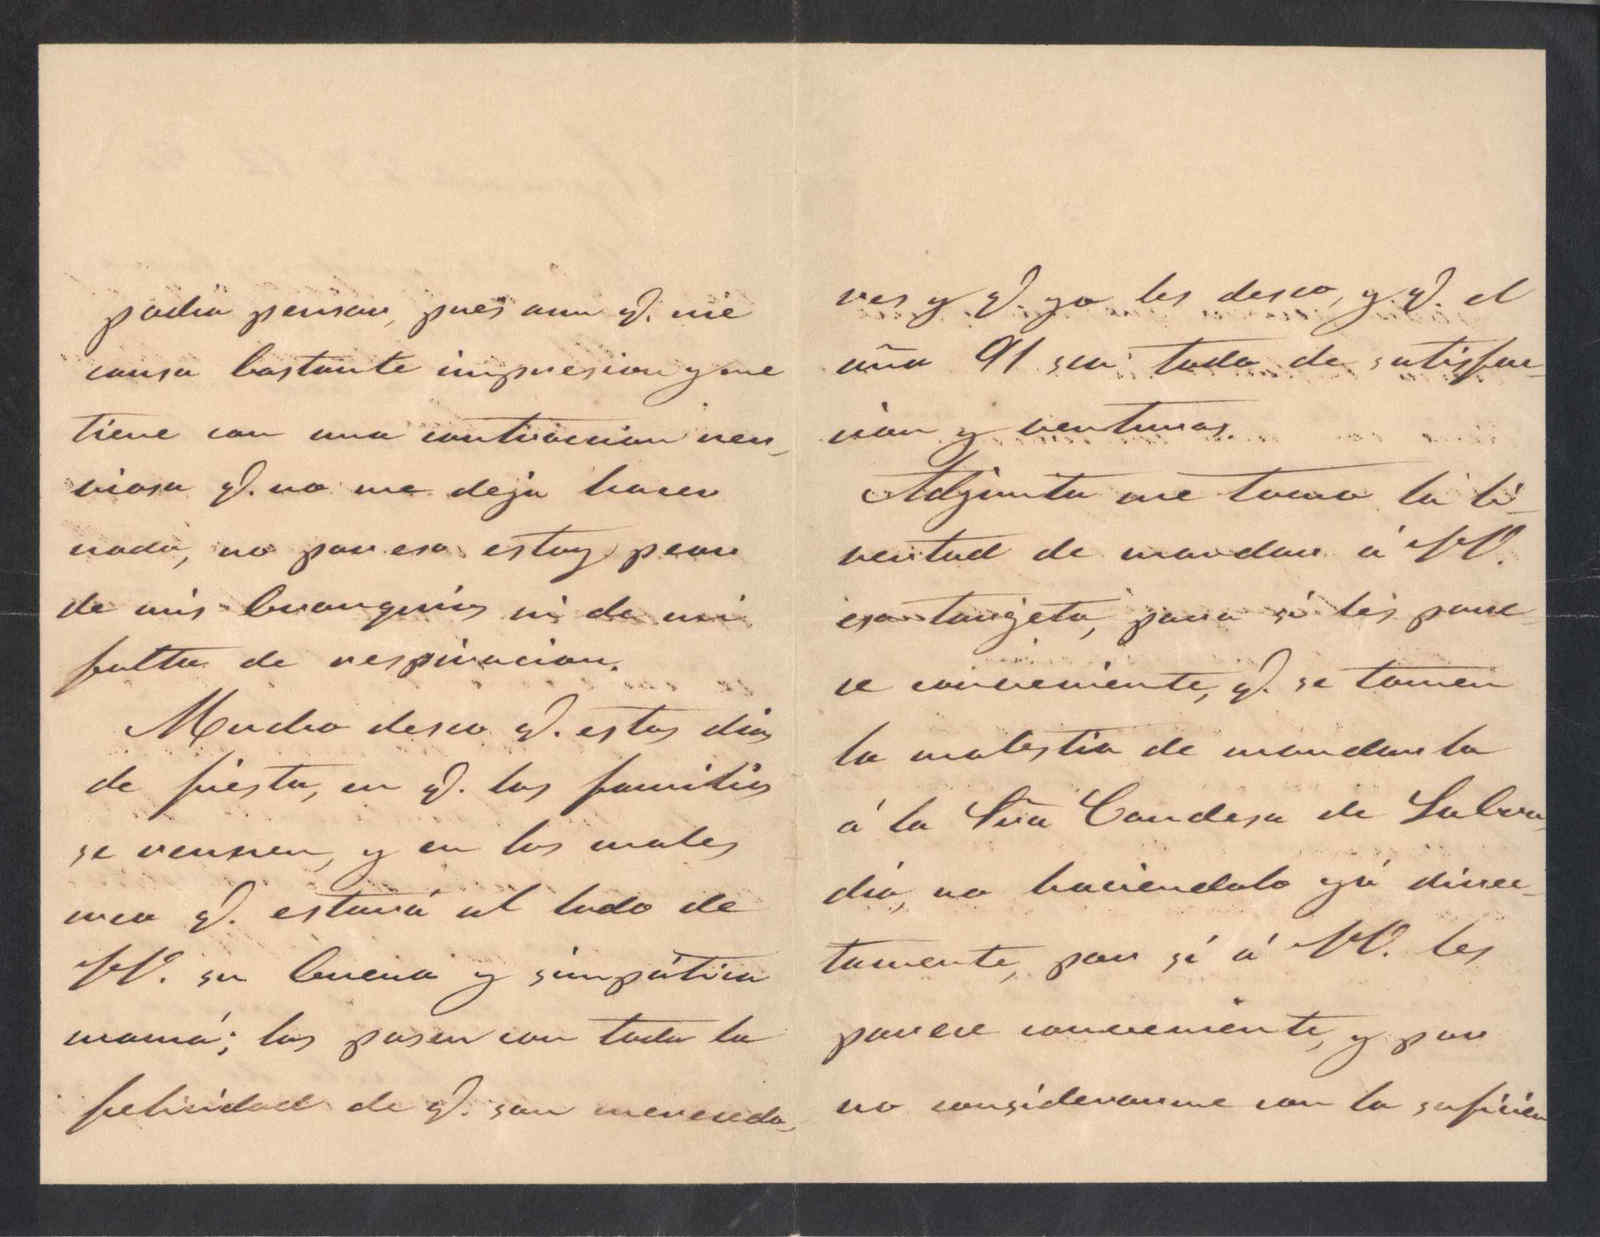 podia pensar, pues aun q. me
causa bastante impresion y me
tiene con una contraccion ner-
viosa q. no me deja hacer
nada, no por eso estoy peor
de mis bronquios ni de mi
falta de respiracion.
Mucho deseo q. estos dias
de fiesta, en q. las familias
se reunen, y en los cuales
creo q. estará al lado de
VV. su buena y simpática
mamá; los pasen con toda la
felicidad de q. son merecedo-
res y q. yo les deseo, y q. el
año 91 sea todo de satisfac-
cion y venturas.
Adjunta me tomo la li-
vertad de mandar á VV.
esa targeta, para si les pare
ce conveniente, q. se tomen
la molestia de mandarla
á la Sra Condesa de Sulvra
dia, no haciendolo yó direc-
tamente, por si á VV. les
parece conveniente, y por
no considerarme con la suficien